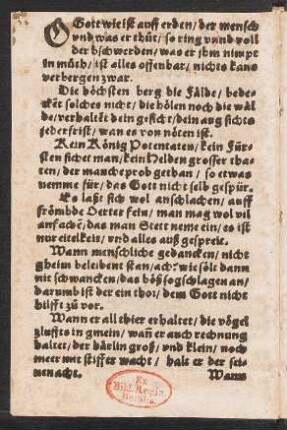 O Gott wie ist auff erden / der mensch
vnd was er thůt / so ring vnnd voll
der bschwerden / was er jhm nimpt
in můth / ist alles offenbar / nichts kans
verbergen zwar.
Die höchsten berg die Fälde / bede-
cket solches nicht / die hölen noch die wäl
de / verhaltēt dein gesicht / dein aug sichts
jederfrist / wan es von nöten ist.
Kein König Potentaten / kein Für-
sten sichet man / kein Helden grosser tha-
ten / der manche prob gethan / so etwas
nemme für / das Gott nicht selb gespür.
Es laßt sich wol anschlachen / auff
frömbde Oerter fein / man mag wol vil
anfachē / das man Stett neme ein / es ist
nur eitelkeit / vnd alles auß gespreit.
Wann menschliche gedancken / nicht
gheim beleibent stan / ach wie sölt dann
nit schwancken / das böß so gschlagen an /
darumb ist der ein thor / dem Gott nicht
hilfft zů vor.
Wann er all thier erhaltet / die vögel
zluffts in gmein / wañ er auch rechnung
haltet / der härlin groß / vnd klein / noch
meer mit stiffer wacht / halt er der sei-
nen acht.
Wann
Ex
Bibl. Regia
Berolin.